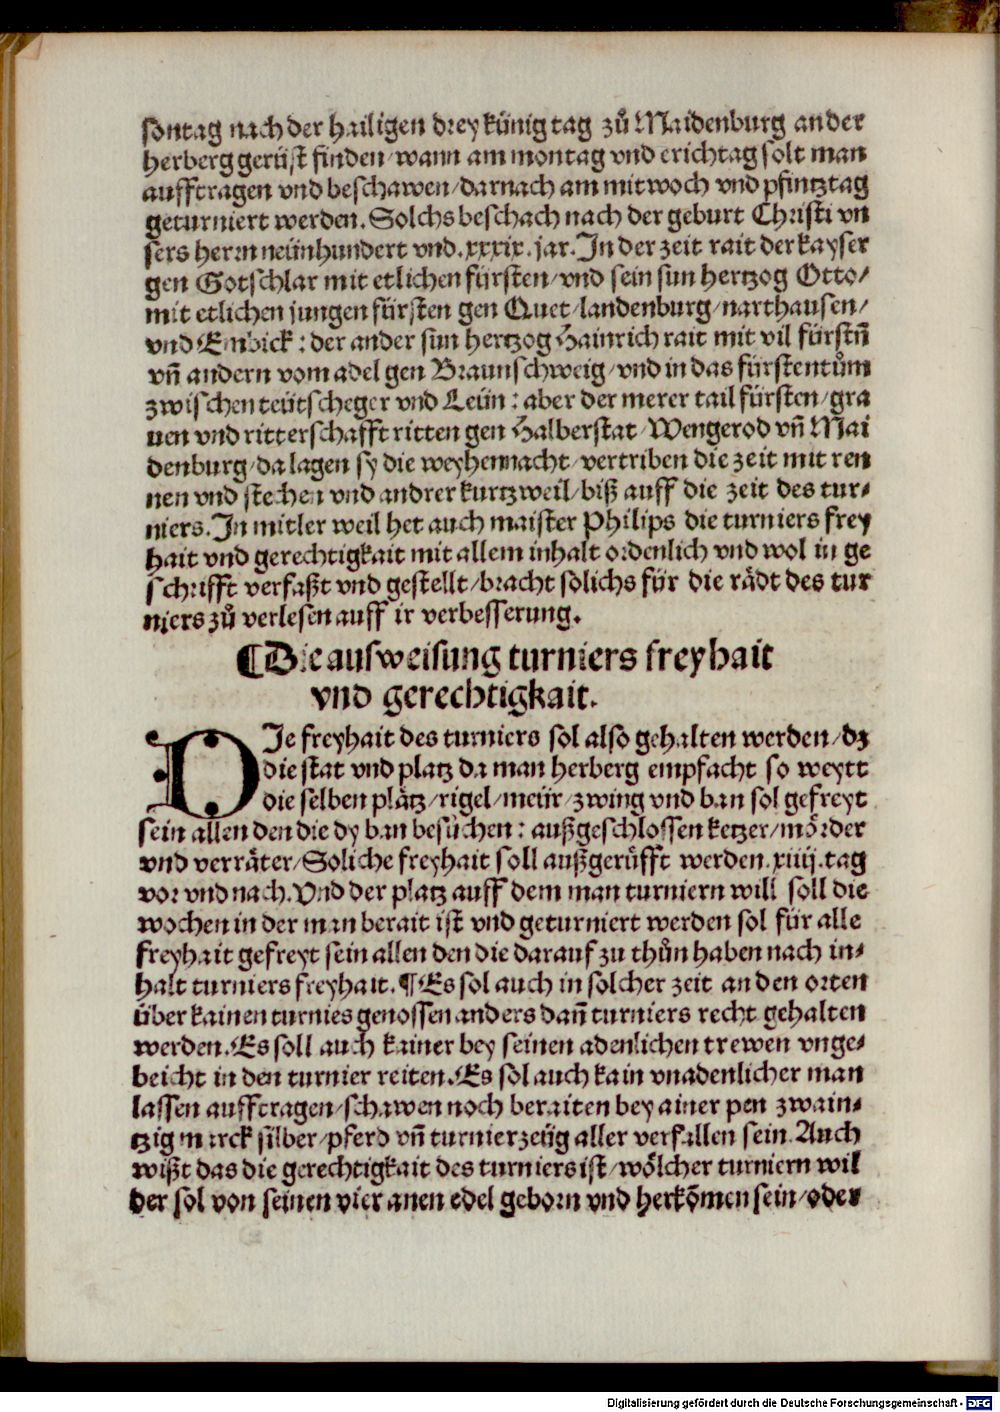 sontag nach der hailigen drey künig tag zů Maidenburg an der
herberg gerüst finden/wann am montag vnd erichtag solt man
aufftragen vnd beschawen/darnach am mitwoch vnd pfintztag
geturniert werden. Solchs beschach nach der geburt Christi vn
sers herrn neünhundert vnd.xxxix.jar. In der zeit rait der kayser
gen Gotschlar mit etlichen fürsten/vnd sein sun hertzog Otto/
mit etlichen jungen fürsten gen Quet/landenburg/narthausen/
vnd Embick: der ander sun hertzog Hainrich rait mit vil fürstñ
vñ andern vom adel gen Braunschweig/vnd in das fürstentům
zwischen teütscheger vnd Leün: aber der merer tail fürsten/gra
uen vnd ritterschafft ritten gen Halberstat/Wengerod vñ Mai
denburg/da lagen sy die weyhennacht/vertriben die zeit mit ren
nen vnd stechen vnd andrer kurtzweil/biß auff die zeit des tur-
niers. In mitler weil het auch maister Philips die turniers frey
hait vnd gerechtigkait mit allem inhalt ordenlich vnd wol in ge
schrifft verfaßt vnd gestellt/bracht solichs für die rädt des tur
niers zů verlesen auff ir verbesserung.
¶Die ausweisung turniers freyhait
vnd gerechtigkait.
DIe freyhait des turniers sol also gehalten werden/dz
die stat vnd platz da man herberg empfacht so weytt
die selben plätz/rigel/meür/zwing vnd ban sol gefreyt
sein allen den die dy ban besůchen: außgeschlossen ketzer/mörder
vnd verräter/Soliche freyhait soll außgerüfft werden.xiiij.tag
vor vnd nach. Vnd der platz auff dem man turniern will soll die
wochen in der man berait ist vnd geturniert werden sol für alle
freyhait gefreyt sein allen den die darauf zu thůn haben nach in-
halt turniers freyhait. ¶Es sol auch in solcher zeit an den orten
über kainen turnies genossen anders dañ turniers recht gehalten
werden. Es soll auch kainer bey seinen adenlichen trewen vnge-
beicht in den turnier reiten. Es sol auch kain vnadenlicher man
lassen aufftragen/schawen noch beraiten bey ainer pen zwain-
tzig marck silber/pferd vñ turnierzeüg aller verfallen sein. Auch
wißt das die gerechtigkait des turniers ist/wölcher turniern wil
der sol von seinen vier anen edel geborn vnd herkõmen sein/oder
Digitalisierung gefördert durch die Deutsche Forschungsgemeinschaft - DFG